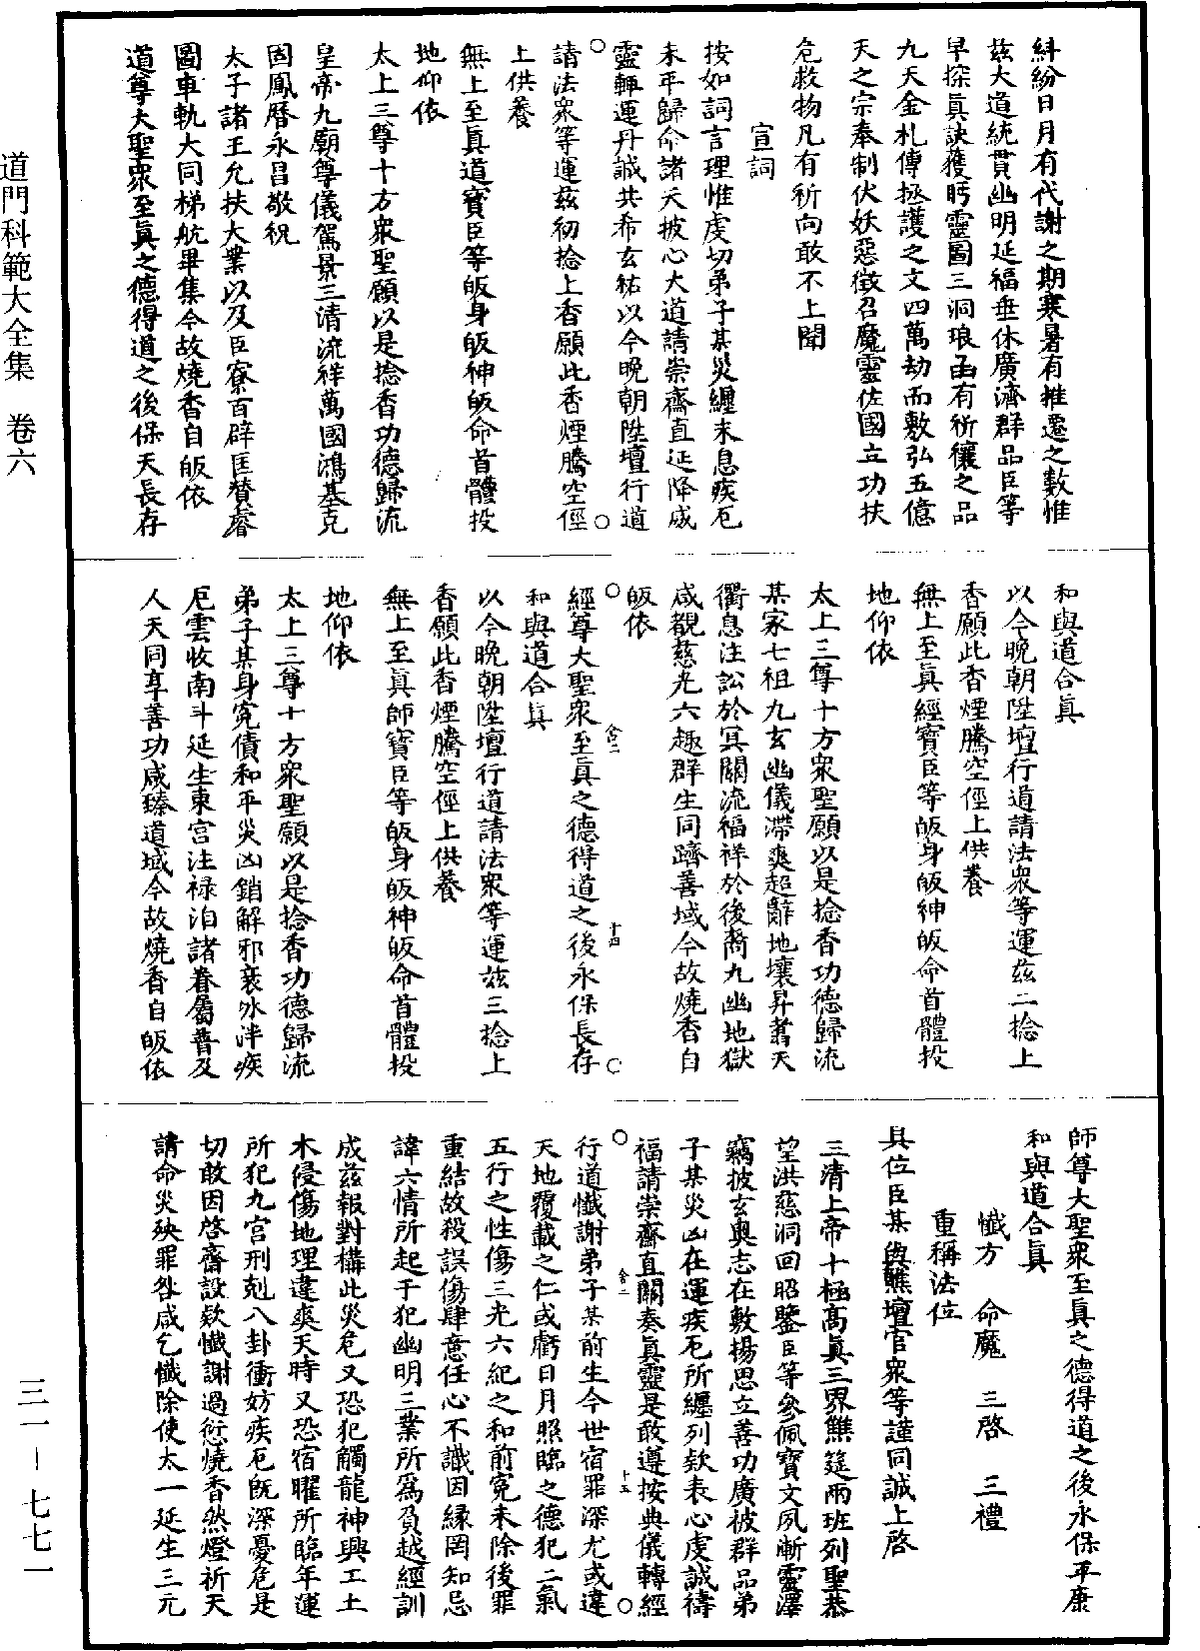 糾紛日月有代謝之期寒暑有推遷之數惟
茲大道統貫幽明延福垂休廣濟群品臣等
早探真訣獲眄靈圖三洞琅函有祈禳之品
九天金札傳拯護之文四萬劫而敷弘五億
天之宗奉制伏妖惡徵召魔靈佐國立功扶
危救物凡有祈向敢不上聞
宣詞
按如詞言理惟虔切弟子某災纏未息疾厄
未平歸命諸天披心大道請崇齋直延降威
靈輙運丹誠共希玄祐以今晚朝陞壇行道
請法衆等運茲初捻上香願此香煙騰空徑
上供養
無上至真道寶臣等皈身皈神皈命首體投
地仰依
太上三尊十方衆聖願以是捻香功德歸流
皇帝九廟尊儀駕景三清流祥萬國鴻基克
固鳳曆永昌敬祝
太子諸王允扶大業以及臣寮百辟匡贊睿
圖車軌大同梯航畢集今故燒香自皈依
道尊大聖衆至真之德得道之後保天長存
和與道合真
以今晚朝陞壇行道請法衆等運茲二捻上
香願此香煙騰空徑上供養
無上至真經寶臣等皈身皈神皈命首體投
地仰依
太上三尊十方衆聖願以是捻香功德歸流
某家七祖九玄幽儀滯爽超辭地壤昇翥天
衢息注訟於冥關流福祥於後裔九幽地獄
咸覩慈光六趣群生同躋善域今故燒香自
皈依
經尊大聖衆至真之德得道之後永保長存
和與道合真
以今晚朝陞壇行道請法衆等運茲三捻上
香願此香煙騰空徑上供養
無上至真師寶臣等皈身皈神皈命首體投
地仰依
太上三尊十方衆聖願以是捻香功德歸流
弟子某身冤債和平災凶銷解邪衰氷泮疾
厄雲收南斗延生東宮注禄洎諸眷屬普及
人天同享善功咸臻道域今故燒香自皈依
師尊大聖衆至真之德得道之後永保平康
和與道合真
懺方　命魔　三啓　三禮
重稱法位
具位臣某與醮壇官衆等謹同誠上啓
三清上帝十極高真三界醮筵兩班列聖恭
望洪慈洞回昭鑒臣等參佩寶文夙漸靈澤
竊披玄奧志在敷揚思立善功廣被群品弟
子某災凶在運疾厄所纏列欵表心虔誠禱
福請崇齋直關奏真靈是敢遵按典儀轉經
行道懺謝弟子某前生今世宿罪深尤或違
天地覆載之仁或虧日月照臨之德犯二氣
五行之性傷三光六紀之和前冤未除後罪
重結故殺誤傷肆意任心不識因緣罔知忌
諱六情所起干犯幽明三業所爲負越經訓
成茲報對構此災危又恐犯觸龍神興工土
木侵傷地理違爽天時又恐宿曜所臨年運
所犯九宮刑剋八卦衝妨疾厄旣深憂危是
切敢因啓齋設欵懺謝過愆燒香然燈祈天
請命災殃罪咎咸乞懺除使太一延生三元
道門科範大全集　卷六
三一－七七一